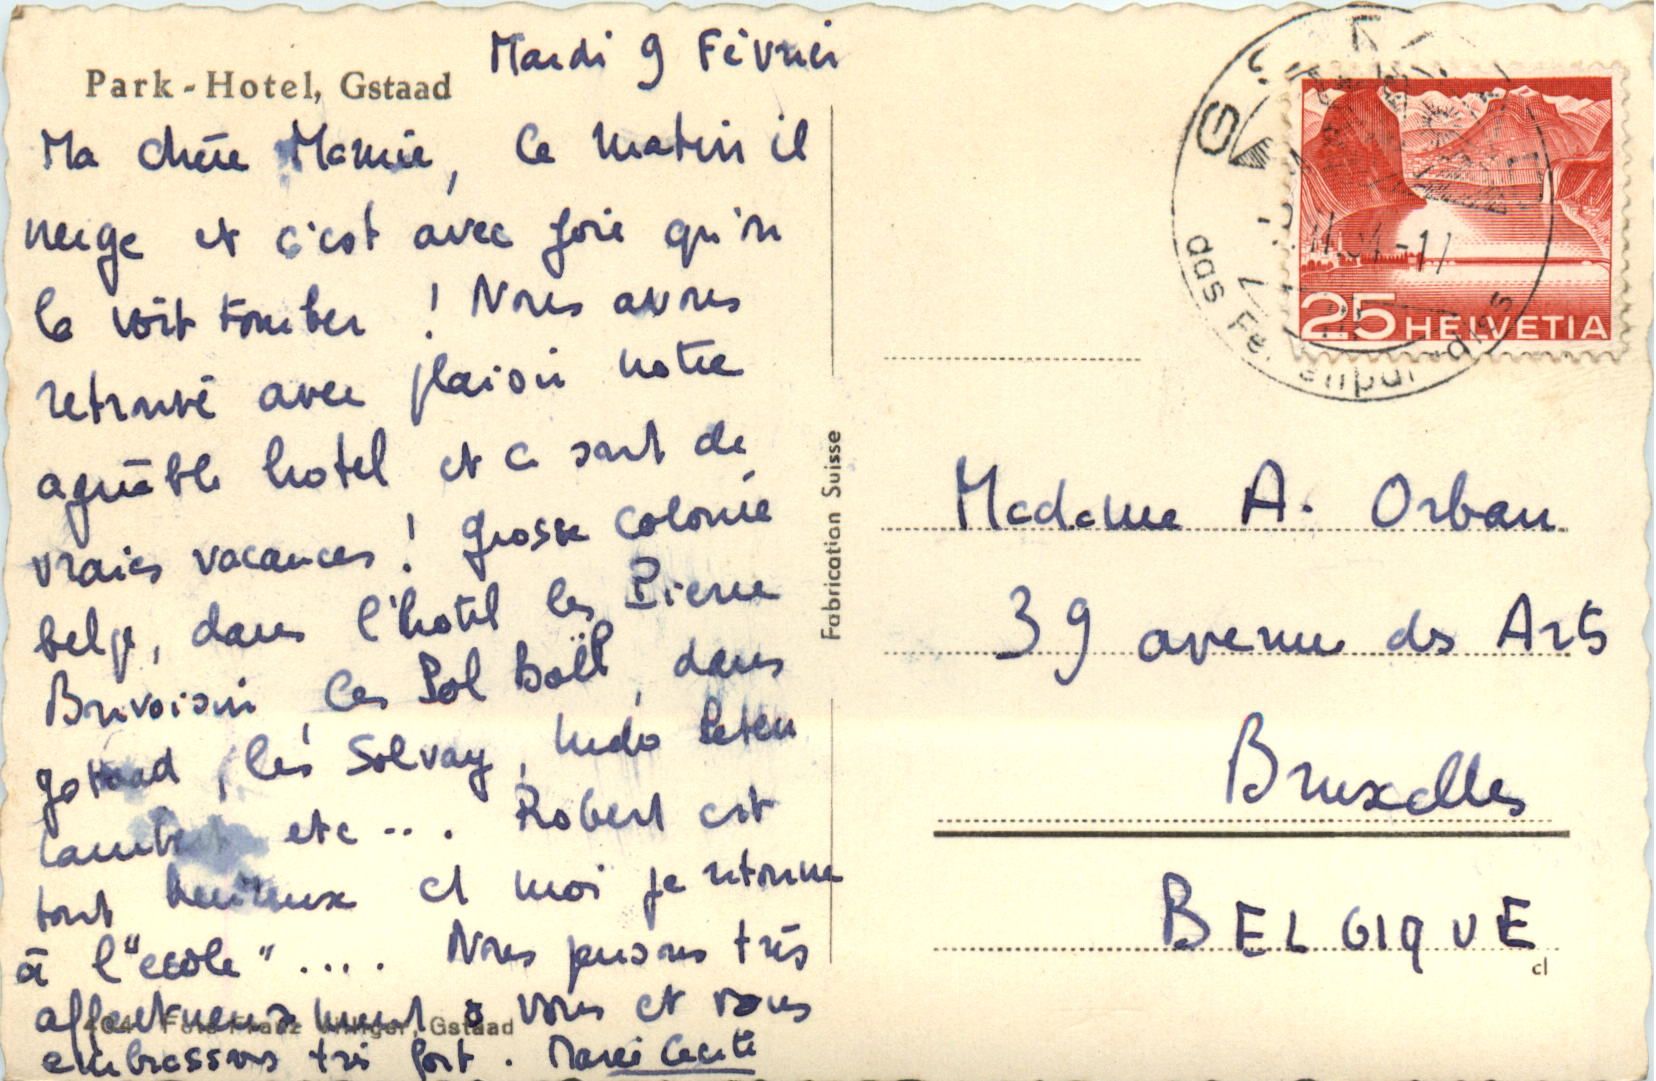 Park-Hotel, Gstaad
Mardi 9 Février
Ma chère Mamie, Ce matin il
neige et c'est avec joie qu'on
la voit tomber ! Nous avons
retrouvé avec plaisir notre
agréable hotel et ce sont de
vraies vacances ! Grosse colonie
belge, dans l'hotel les Pierre
Brivoisin, les Pol Boël, dans
gstaad, les Solvay, Ludo Peten
Lambert etc .... Robert est
tout heureux et moi je retourne
à l'"école" .... Nous pensons très
affectueusement à vous et vous
embrassons très fort. Marie Cecile
Gstaad
Fabrication Suisse
25 HELVETIA
Madame A. Orban
39 avenue des Arts
Bruxelles
BELGIQUE
cl